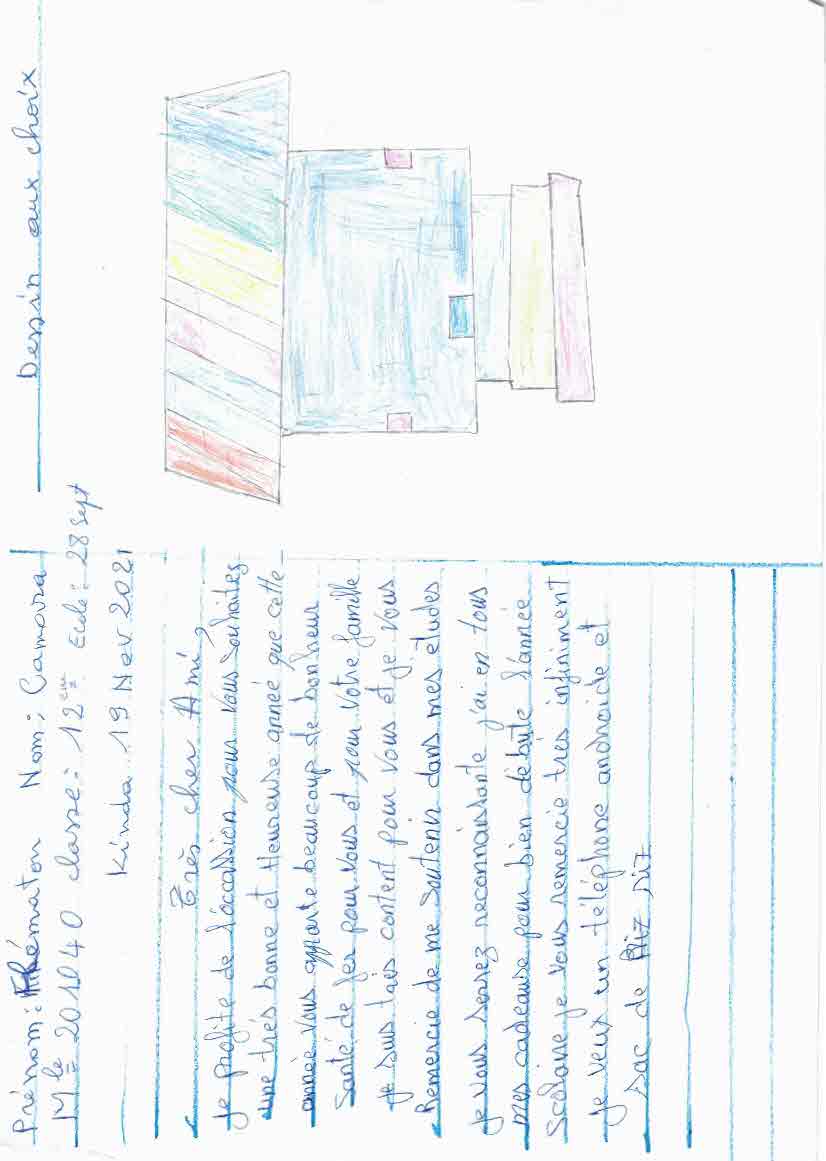 Prénom: Fkématon Nom: Camara
Mle = 201040 classe: 12em Ecole: 28 Sept
Kinda 19 Nov 2021
Très cher Ami,
Je profite de l'occassion pour vous souhaitez
une très bonne et Heureuse année que cette
année vous apporte beaucoup de bonheur
Santé de fer pour vous et pour votre famille
je suis tais content pour vous et je vous
Remercie de me soutenir dans mes études
je vous serrez reconnaissante j'ai en tous
mes cadeause pour bien débute l'année
Scolaire je vous remercie très infiniment
je veux un téléphone androide et
Sac de Riz riz
Dessin aux choix